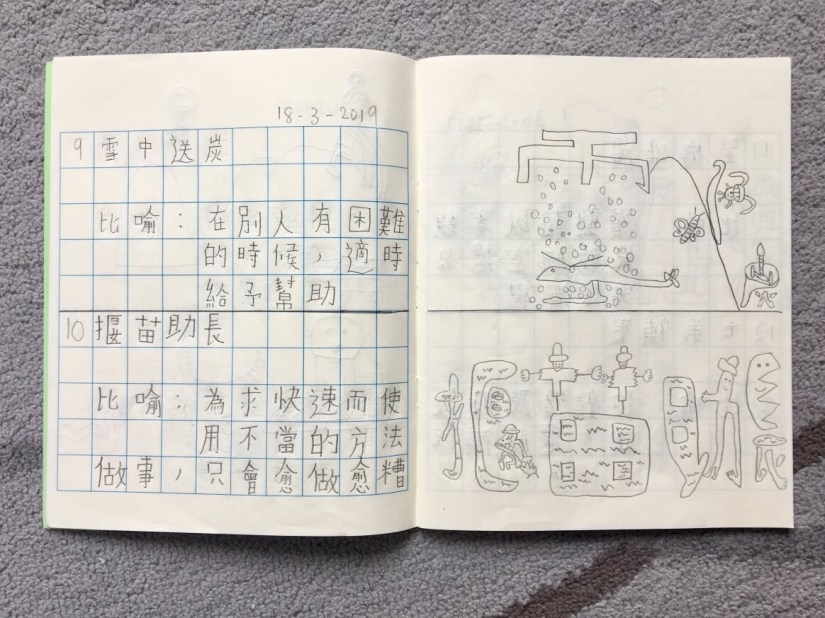 18-3-2019
9 雪中送炭
比喻：在別人有困難
的時候，適時
給予幫助
10 揠苗助長
比喻：為求快速而使
用不當的方法
做事，只會愈做愈糟